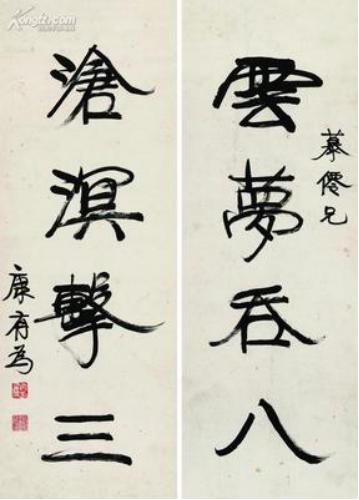 雲夢吞八
慕僊兄
滄溟擊三
康有為
Kongfz.com